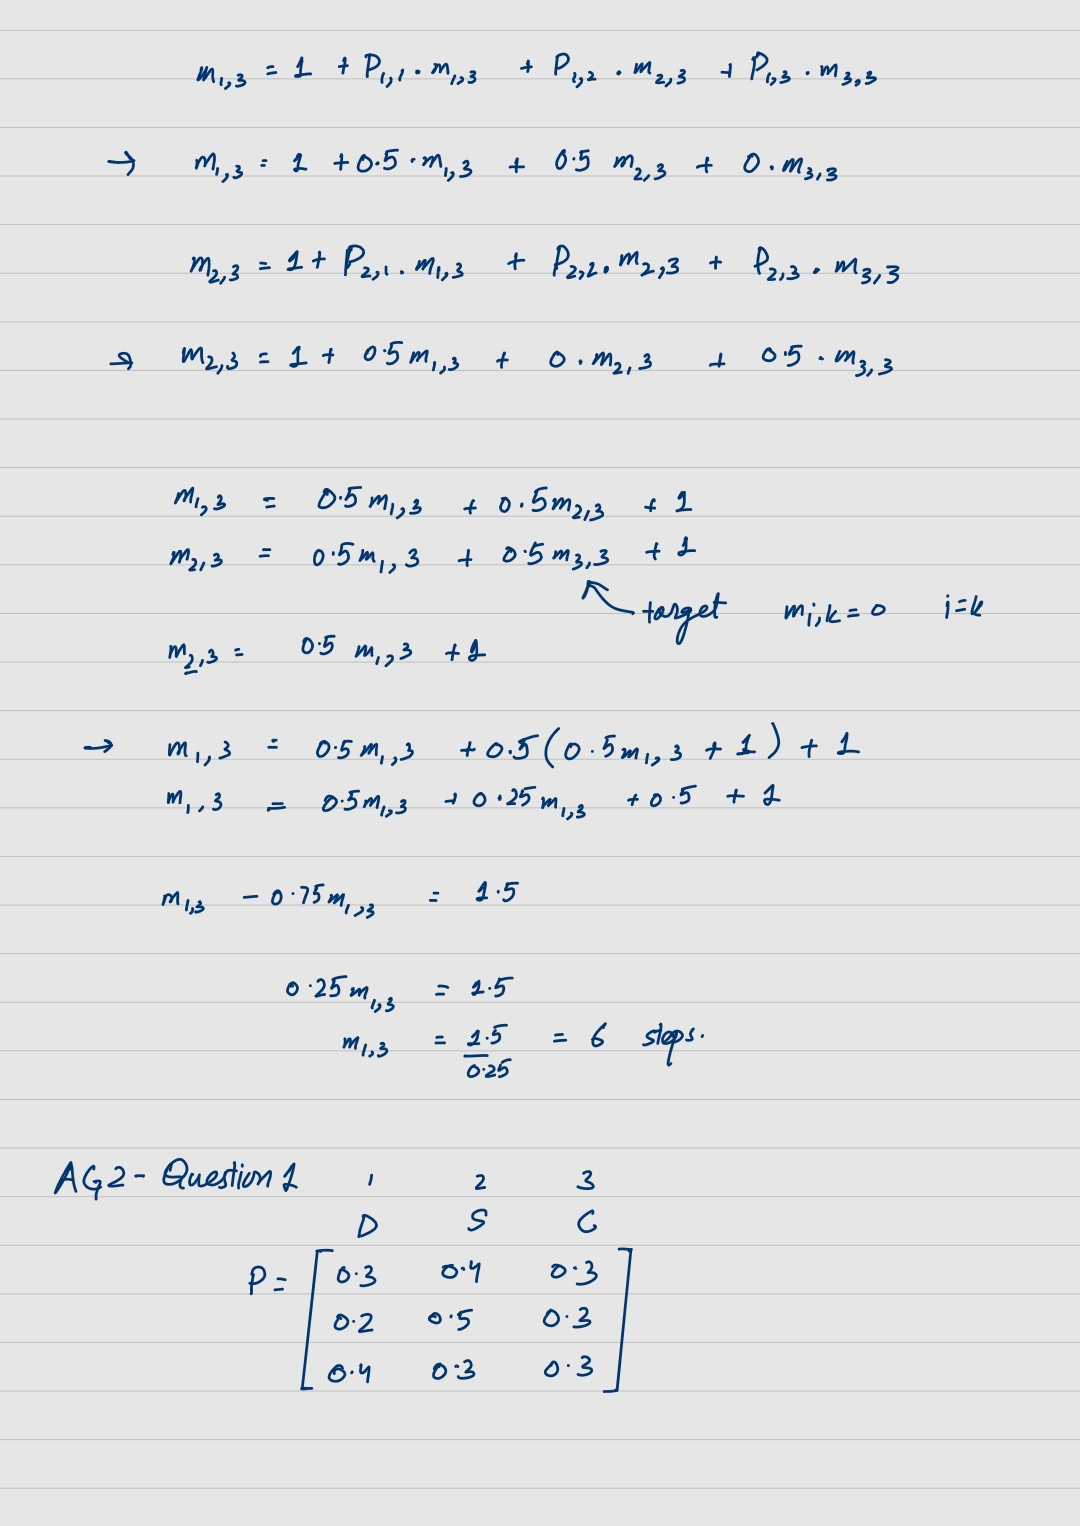 m₁,₃ = 1 + P₁,₁ · m₁,₃ + P₁,₂ · m₂,₃ + P₁,₃ · m₃,₃
→ m₁,₃ = 1 + 0.5 · m₁,₃ + 0.5 m₂,₃ + 0 . m₃,₃
m₂,₃ = 1 + P₂,₁ . m₁,₃ + P₂,₂ . m₂,₃ + P₂,₃ . m₃,₃
→ m₂,₃ = 1 + 0.5 m₁,₃ + 0 . m₂,₃ + 0.5 . m₃,₃
m₁,₃ = 0.5 m₁,₃ + 0.5 m₂,₃ + 1
m₂,₃ = 0.5 m₁,₃ + 0.5 m₃,₃ + 1
target mᵢ,ₖ = 0 i=k
m₂,₃ = 0.5 m₁,₃ + 1
→ m₁,₃ = 0.5 m₁,₃ + 0.5 (0.5 m₁,₃ + 1) + 1
m₁,₃ = 0.5 m₁,₃ + 0.25 m₁,₃ + 0.5 + 1
m₁,₃ - 0.75 m₁,₃ = 1.5
0.25 m₁,₃ = 1.5
m₁,₃ = 1.5/0.25 = 6 steps.
AG2 - Question 1 1 2 3
D S C
P = [ 0.3 0.4 0.3
0.2 0.5 0.3
0.4 0.3 0.3 ]